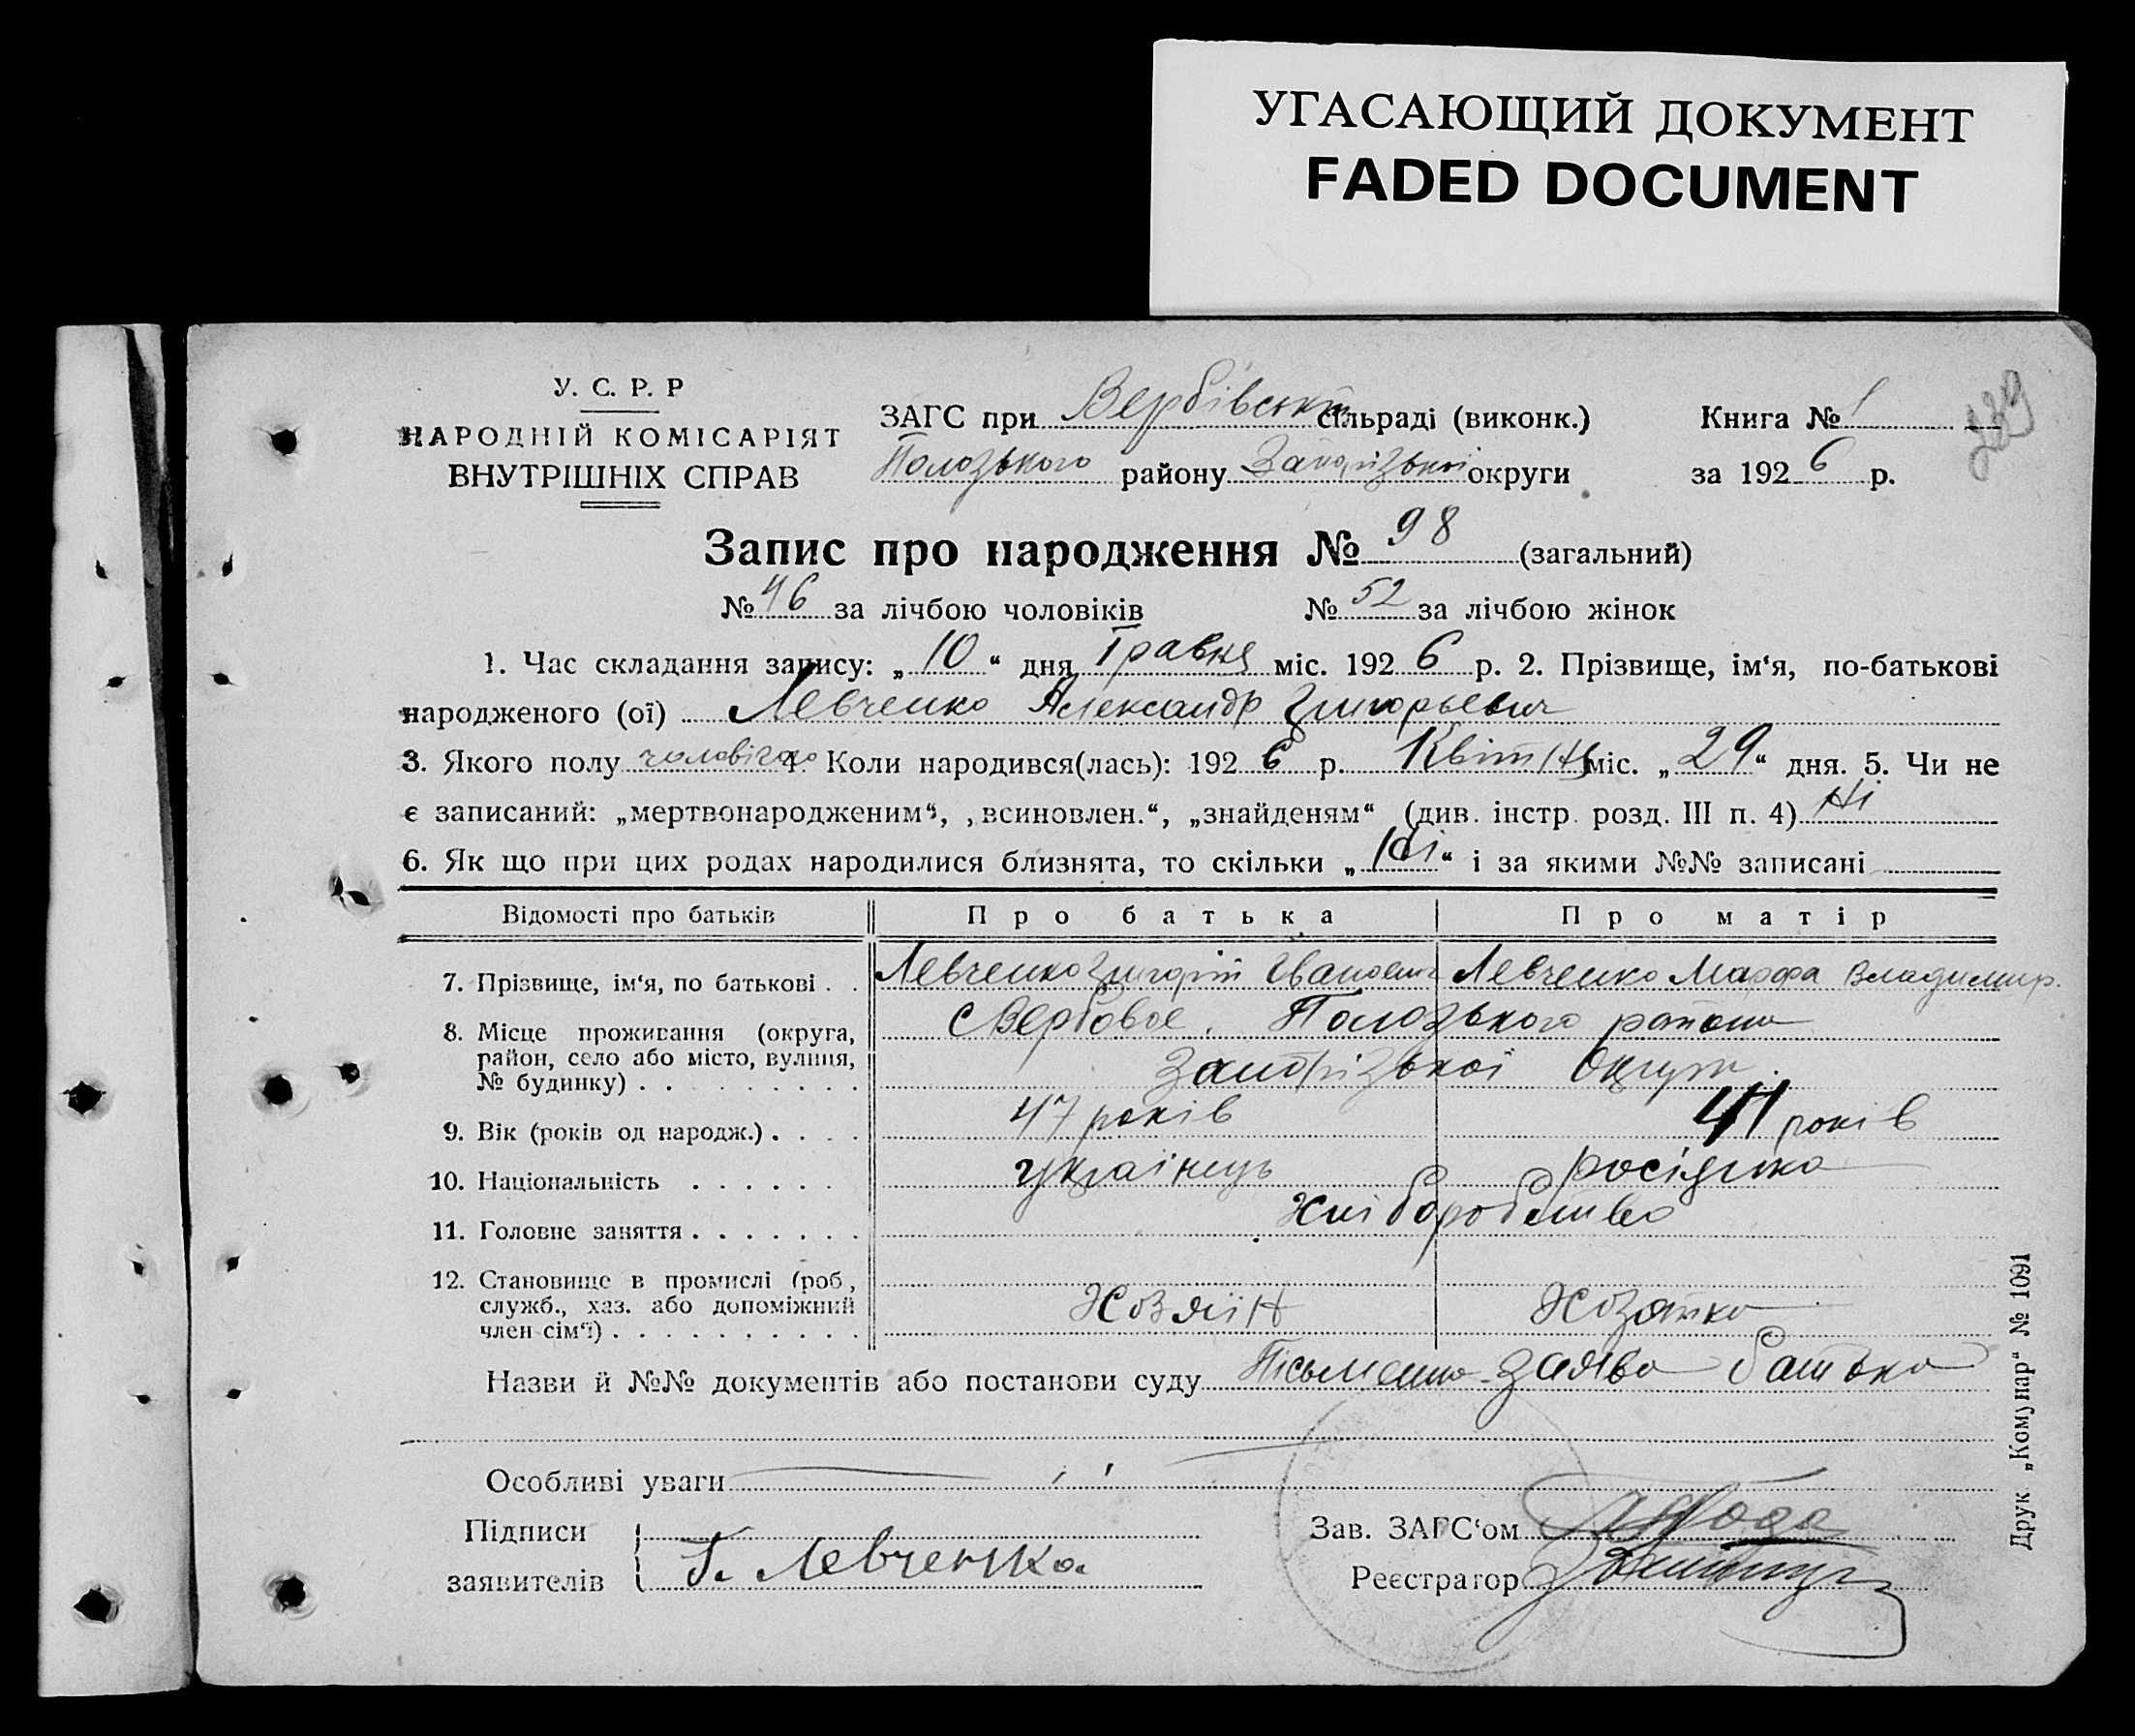 УГАСАЮЩИЙ ДОКУМЕНТ
FADED DOCUMENT
239
У. С. Р. Р
НАРОДНІЙ КОМІСАРІЯТ
ВНУТРІШНІХ СПРАВ
ЗАГС при Вербівській сільраді (виконк.)
Полозького району Запорізької округи
Книга № 1
за 1926 р.
Запис про народження № 98 (загальний)
№ 46 за лічбою чоловіків № 52 за лічбою жінок
1. Час складання запису: „10“ дня Травня міс. 1926 р. 2. Прізвище, ім‘я, по-батькові
народженого (ої) Левченко Александр Григорьевич
3. Якого полу чоловічого 4. Коли народився(лась): 1926 р. Квітня міс. „29“ дня. 5. Чи не
є записаний: „мертвонародженим“, „всиновлен.“, „знайденям“ (див. інстр. розд. III п. 4) Ні
6. Як що при цих родах народилися близнята, то скільки „Ні“ і за якими №№ записані
Відомості про батьків Про батька Про матір
7. Прізвище, ім‘я, по батькові . . Левченко Григорій Іванович Левченко Марфа Владимир.
8. Місце проживання (округа, с Вербовое. Полозького району
район, село або місто, вулиця,
№ будинку) . . . . . . . . . Запорізької Округи.
9. Вік (років од народж.) . . . . 47 років 41 років
10. Національність . . . . . . українець росіянка
11. Головне заняття . . . . . . . Хліборобство
12. Становище в промислі (роб.,
служб., хаз. або допоміжний
член сім‘ї) . . . . . . . . . . Хозяїн Хозяйка
Назви й №№ документів або постанови суду Пісьменна заява батька
Особливі уваги
Підписи
заявителів
Г. Левченко.
Зав. ЗАГС‘ом
Реєстратор
Друк. „Комунар“ № 1091